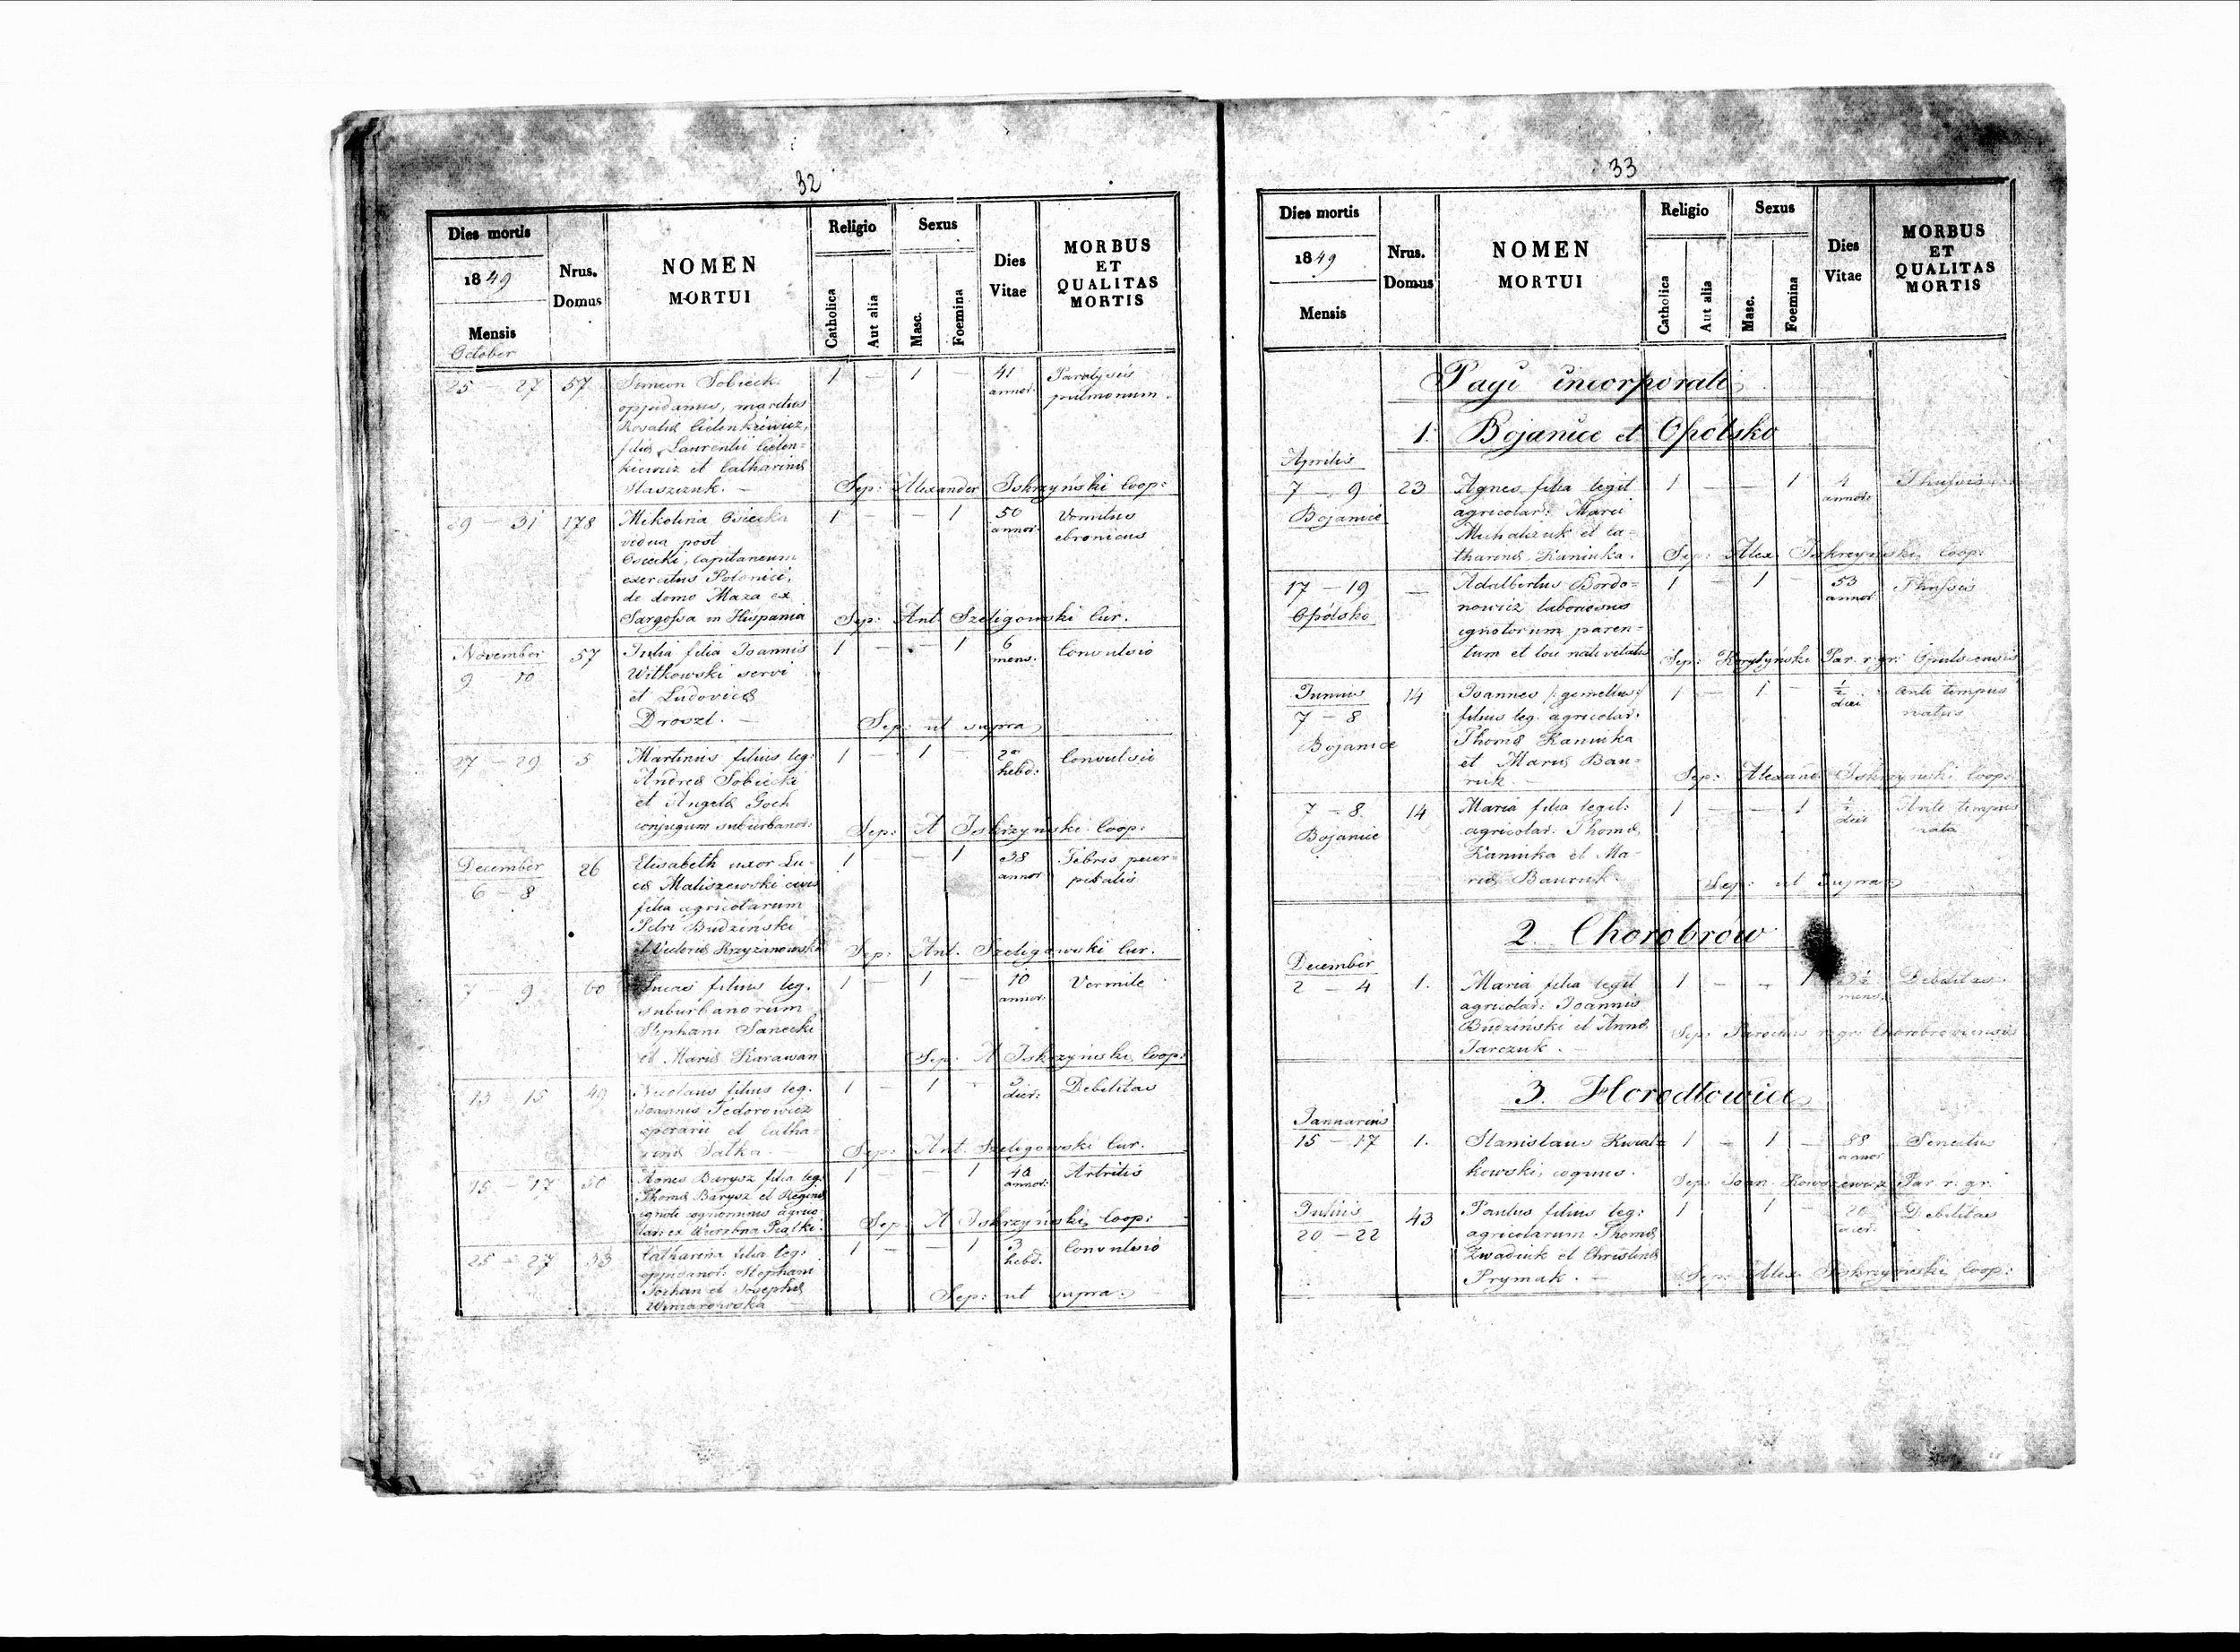 32
Dies mortis
1849
Mensis
Nrus.
Domus
NOMEN
MORTUI
Religio
Catholica
Aut alia
Sexus
Masc.
Foemina
Dies
Vitae
MORBUS
ET
QUALITAS
MORTIS
October
25 – 27 57 Simeon Sobieck. 1 – 1 – 41 annor. Paralysis
oppidanus, maritus pulmonum.
Rosaliæ Cielenkiewicz,
filiæ Laurentii Cielen=
kiewicz et Catharinæ
Staszczuk. – Sep: Alexander Iskrzynski Coop:
29 – 31 178 Mikolina Osiecka 1 – – 1 50 annor. Vomitus
vidua post chronicus
Osiecki, capitaneum
exercitus Polonici,
de domo Maza ex
Sargossa in Hispania Sep: Ant. Szeligowski Cur.
November
9 – 10 57 Julia filia Joannis 1 – – 1 6 mens. Convulsio
Witkowski servi
et Ludovicæ
Droszl. – Sep: ut supra
27 – 29 5 Martinus filius leg: 1 – 1 – 2 hebd: Convulsio
Andreæ Sobiecki
et Angelæ Goch
conjugum suburbanor: Sep: A Iskrzynski Coop:
December
6 – 8 26 Elisabeth uxor Lu- 1 – – 1 38 annor Febris puer=
cæ Maliszewski civis peralis
filia agricolarum
Petri Budziński
et Victoriæ Krzyżanowska Sep: Ant. Szeligowski Cur.
7 – 9 60 Lucas filius leg. 1 – 1 – 10 annor: Vermile
suburbanorum
Stephani Sanecki
et Mariæ Karawan Sep: A Iskrzynski Coop:
13 – 15 49 Nicolaus filius leg. 1 – 1 – 3 dier: Debilitas
Joannis Fedorowicz
operarii et Catha=
rinæ Salka. – Sep: Ant. Szeligowski Cur.
15 – 17 50 Agnes Barysz filia leg: 1 – – 1 40 annor: Artritis
Thomæ Barysz et Reginæ
ignoti cognominis agrico
lar: ex Wierzbna Piątki. Sep: A Iskrzyński Coop:
25 – 27 33 Catharina filia leg: 1 – – 1 3 hebd. Convulsio
oppidanor: Stephani
Sochan et Josephæ
Winiarowska – Sep: ut supra.
33
Dies mortis
1849
Mensis
Nrus.
Domus
NOMEN
MORTUI
Religio
Catholica
Aut alia
Sexus
Masc.
Foemina
Dies
Vitae
MORBUS
ET
QUALITAS
MORTIS
Pagi incorporati
1. Bojanice et Opólsko
Aprilis
7 – 9 23 Agnes filia legit 1 – – 1 4 annor: Thussis
Bojanice agricolar: Marci
Michalczuk et Ca-
tharinæ Kaniuka. Sep: Alex Iskrzynski Coop:
17 – 19 – Adalbertus Bordo= 1 – 1 – 53 annor. Thussis
Opólsko nowicz laboriosus
ignotorum paren=
tum et loci nativitatis Sep: Par. r. gr. Opulscensis
Junius
7 – 8 14 Joannes /:gemellus:/ 1 – 1 – ½ diei Ante tempus
Bojanice filius leg. agricolar. natus
Thomæ Kaniuka
et Mariæ Bau-
ruk. – Sep: Alexand Iskrzynski Coop:
7 – 8 14 Maria filia legit: 1 – – 1 ½ diei Ante tempus
Bojanice agricolar: Thomæ nata
Kaniuka et Ma-
riæ Bauruk. Sep: ut supra
2. Chorobrów
December
2 – 4 1. Maria filia legit 1 – – 1 3½ mens. Debilitas
agricolar: Joannis
Budziński et Annæ
Jarczuk. – Sep: Parochus r. gr: Chorobroviensis
3. Horodłowice
Jannarius
15 – 17 1. Stanislaus Kwiat= 1 – 1 – 88 annor Senectus
kowski, coquus. Sep: Joan Par. r. gr.
Julius
20 – 22 43 Paulus filius leg: 1 1 – 20 dier. Debilitas
agricolarum Thomæ
Zwadiuk et Christinæ
Prymak. – Sep: Alex Iskrzyński Coop: